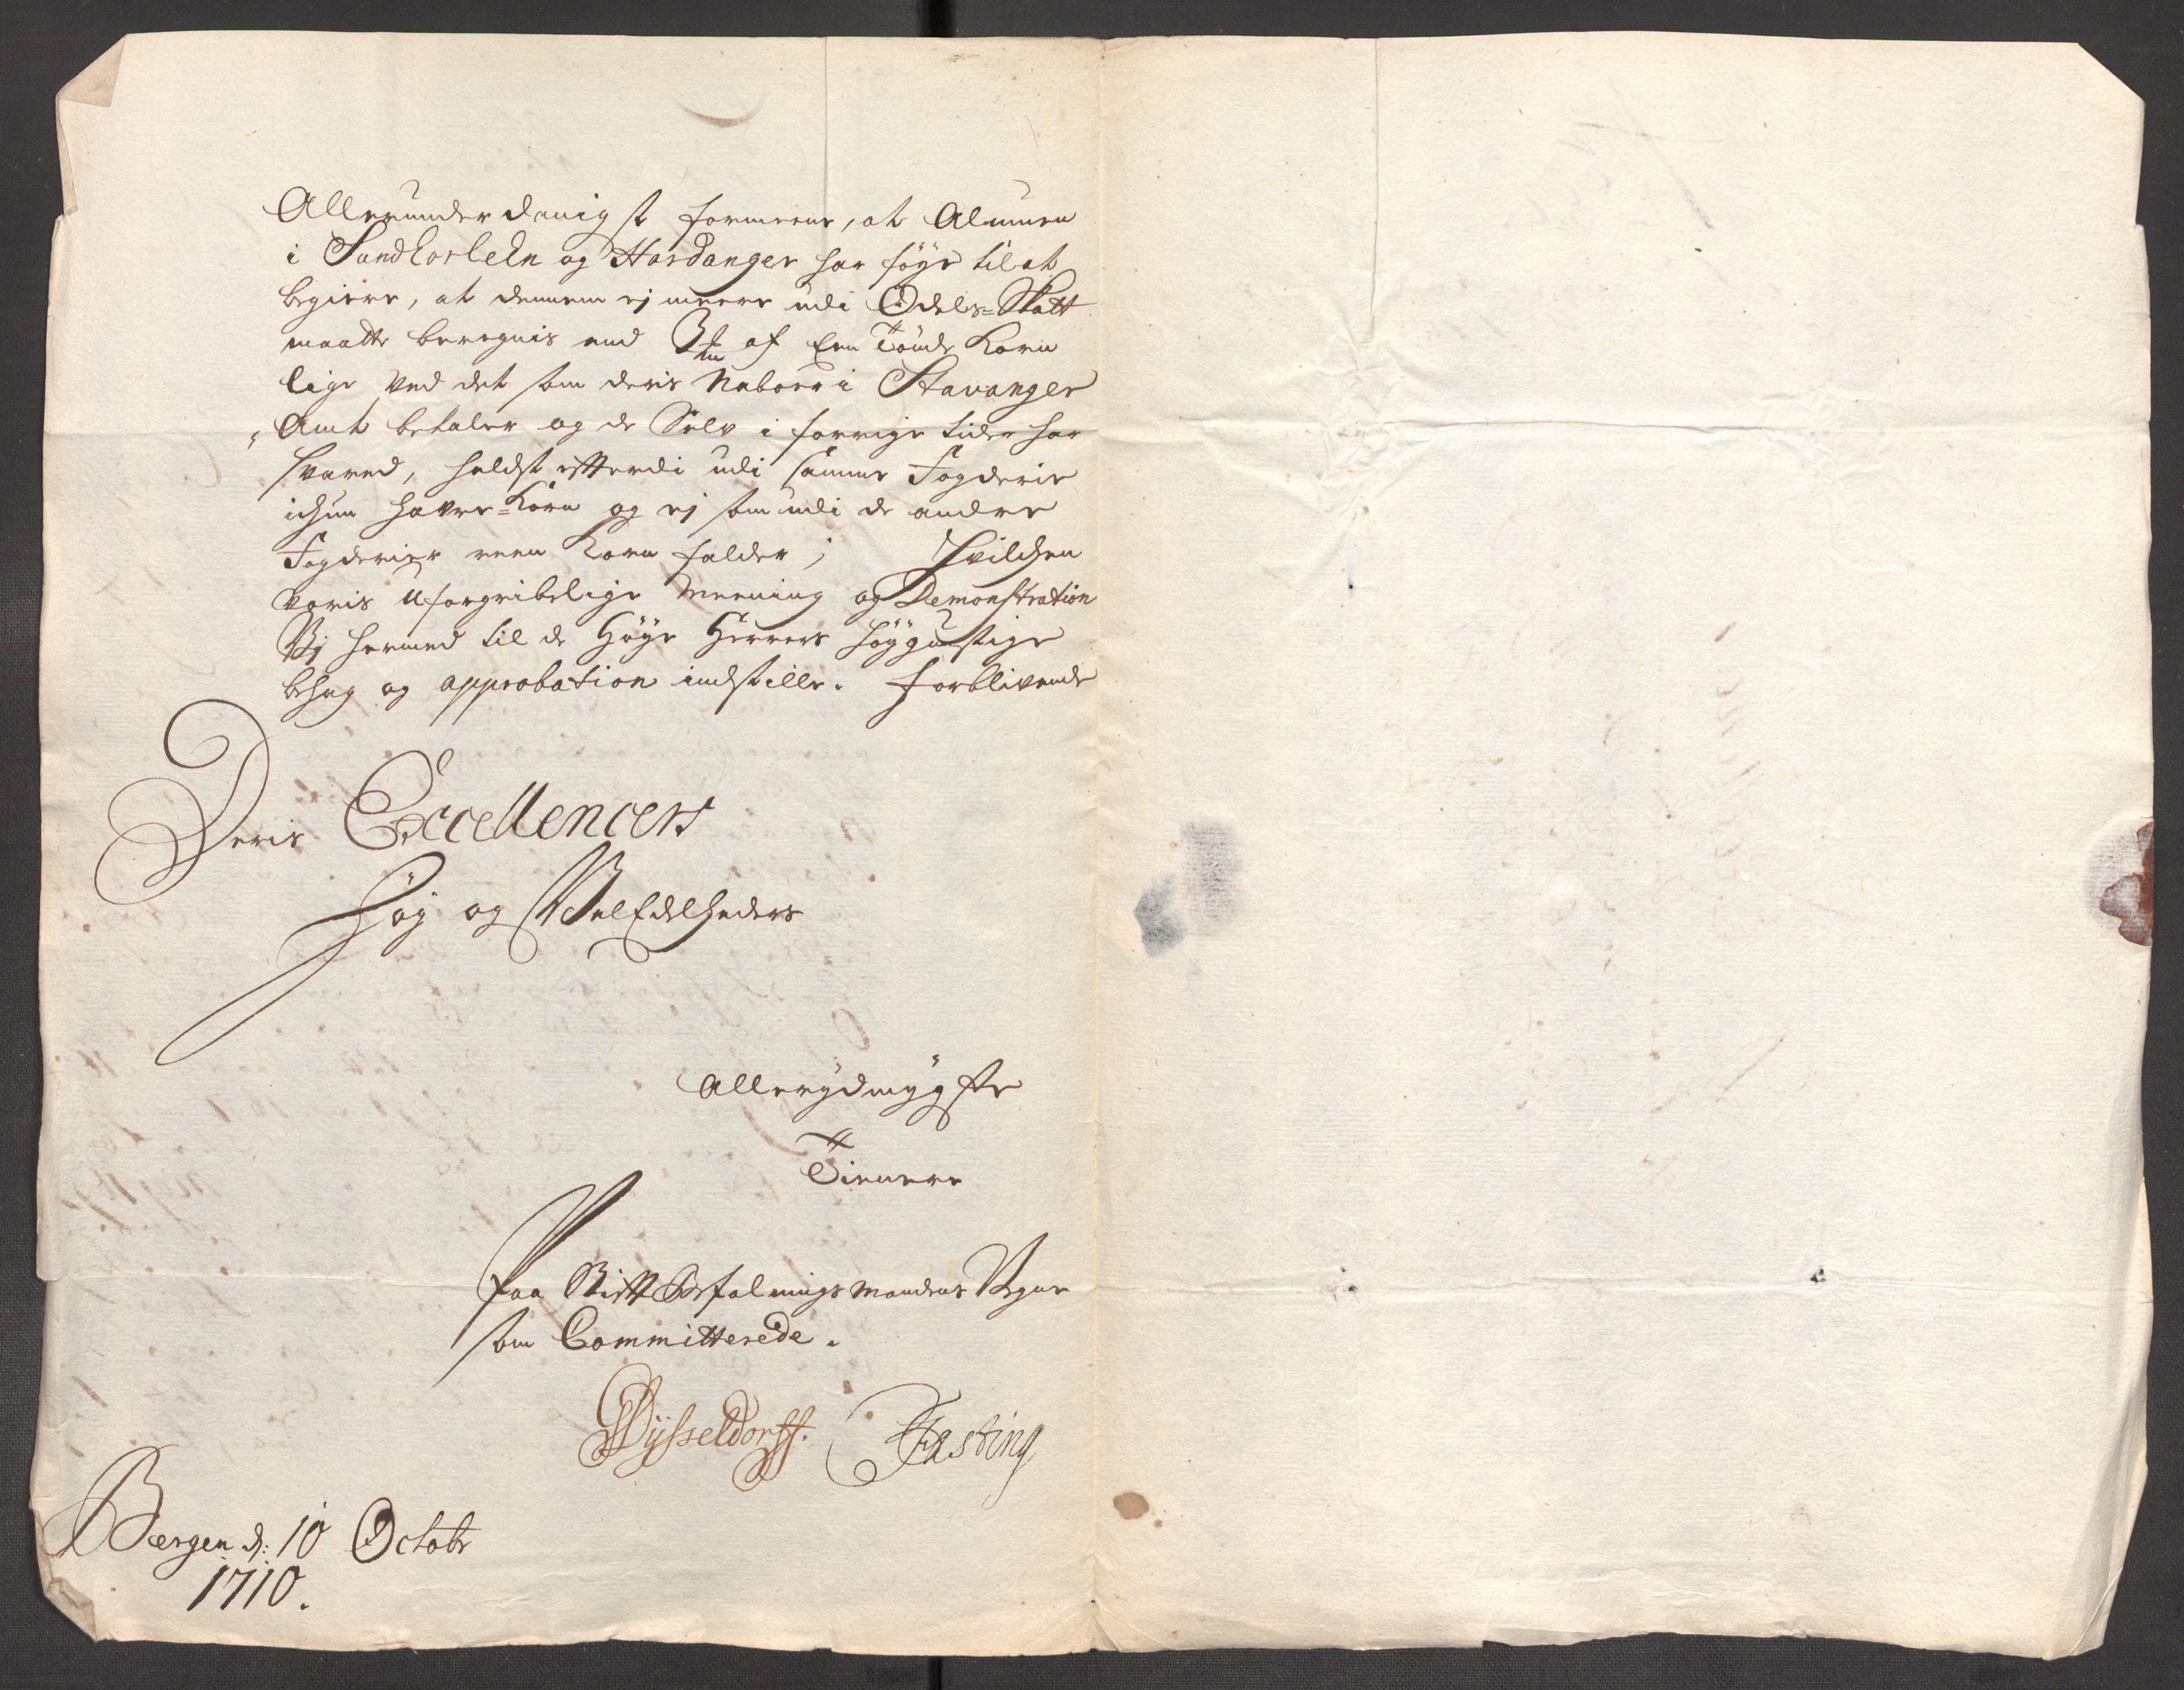 Allerunderdanigst formeene, at Almuen
i Sundhorlehn og Hardanger har føye til at
begiere, at dennem ej meere udi Odels-Skatt
maatte beregnis end af Een Tønde Korn
lige ved det som deris Naboer i Stavanger
Amt betaler og de Selv i forrige tider har
svared, heldst efterdi udi samme Fogderie
ichun Havre-Korn og ej som udi de andre
Fogderier reen Korn falder; Hvilchen
voris uforgribelige meening og Demonstration
Vj hermed til de Høye Herrers høygunstige
behag og approbation indstille. forblivende
Deris Excellencers
Høy og VelEdelheders
Allerydmygste
Tienere
Paa Stiftbefalningsmandens Vegne
som Committerede.
Dÿsseldorff. Fasting
Bergen d: 10 Octobr
1710.